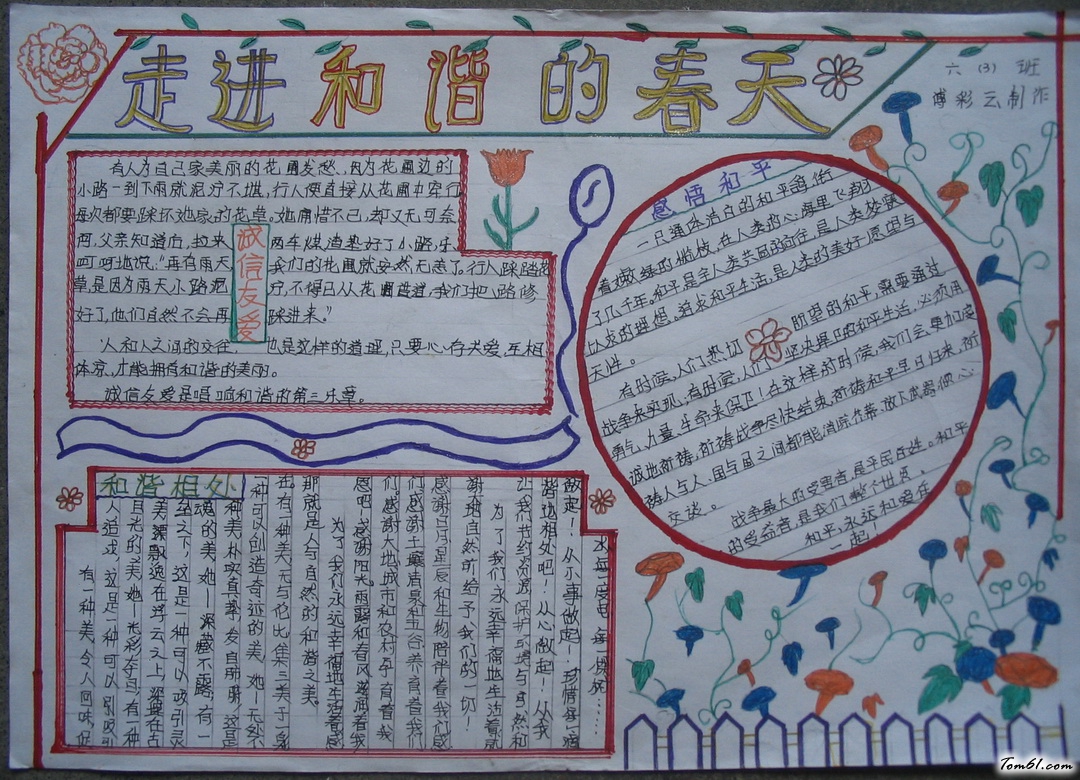 走进和谐的春天
六(3)班
博彩云制作
有人为自己家美丽的花圃发愁,因为花圃边的
小路一到下雨就泥泞不堪,行人便直接从花圃中穿行
每次都要踩坏她家的花草。她痛惜不已,却又无可奈
何,父亲知道后,拉来 两车煤渣垫好了小路,乐
呵呵地说:“再有雨天 我们的花圃就安然无恙了。行人踩踏花
草是因为雨天小路泥 泞,不得已从花圃,我们把小路修
好了,他们自然不会再 踩进来。”
诚信友爱
人和人之间的交往 也是这样的道理,只要心存关爱,互相
体谅,才能拥有和谐的美丽。
诚信友爱是唱响和谐的第三乐章。
感悟和平
一只通体洁白的和平鸽,衔
着嫩绿的橄榄枝,在人类的心海里飞翔
了几千年。和平是全人类共同的 是人类梦寐
以求的理想。追求和平生活,是人类的美好愿望与
天性。
有时候,人们热切 盼望的和平,需要通过
战争来实现;有时候,人们 坚决捍卫的和平生活,必须用
勇气、力量、生命来保卫!在这样的时候,我们会更加虔
诚地祈祷,祈祷战争尽快结束,祈祷和平早日归来,祈
祷人与人、国与国之间都能消除仇恨,放下武器倾心
交谈。
战争最大的受害者是平民百姓。和平
的受益者是我们整个世界。
和平,永远和爱在
一起!
和谐相处
有一种美,令人回味,促
人追求,这是一种可以吸引
目光的美,她—光彩夺目;有一种
美,飘逸在浮云之上,深埋在古
至之下,这是一种可以吸引灵
魂的美,她—深藏不露;有一
种美,朴实真挚,发自肺腑,这是
一种可以创造奇迹的美,她—无处不
在;有一种美,无与伦比,集三美于一身
那就是人与自然的和谐之美。
为了我们永远幸福地生活着,感
恩吧!感谢阳光、雨露和春风滋润着我
们,感谢大地、城市和农村孕育着我
们,感谢土壤、清泉和五谷养育着我们
感谢日月星辰和生物陪伴着我们,感
谢大自然所给予我们的一切!
为了我们永远幸福地生活着,就
让我们节约资源,保护环境,与自然和
谐地相处吧!从心做起!从我
做起!从小事做起!珍惜每一滴
水,每一度电,每一棵树……
Tom61.com